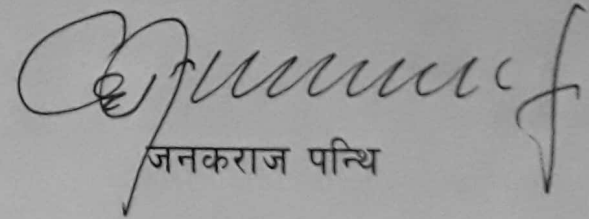 जनकराज पन्थि